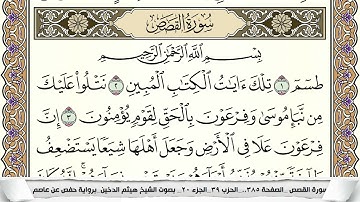 سُورَةُ القَصَصِ
بِسْمِ اللَّهِ الرَّحْمَٰنِ الرَّحِيمِ
طسٓمٓ ١ تِلْكَ ءَايَٰتُ ٱلْكِتَٰبِ ٱلْمُبِينِ ٢ نَتْلُوا۟ عَلَيْكَ
مِن نَّبَإِ مُوسَىٰ وَفِرْعَوْنَ بِٱلْحَقِّ لِقَوْمٍ يُؤْمِنُونَ ٣ إِنَّ
فِرْعَوْنَ عَلَا فِى ٱلْأَرْضِ وَجَعَلَ أَهْلَهَا شِيَعًا يَسْتَضْعِفُ
سورة القصص _الصفحة ٣٨٥... الحزب ٣٩_الجزء ٢٠_ بصوت الشيخ هيثم الدخين_برواية حفص عن عاصم